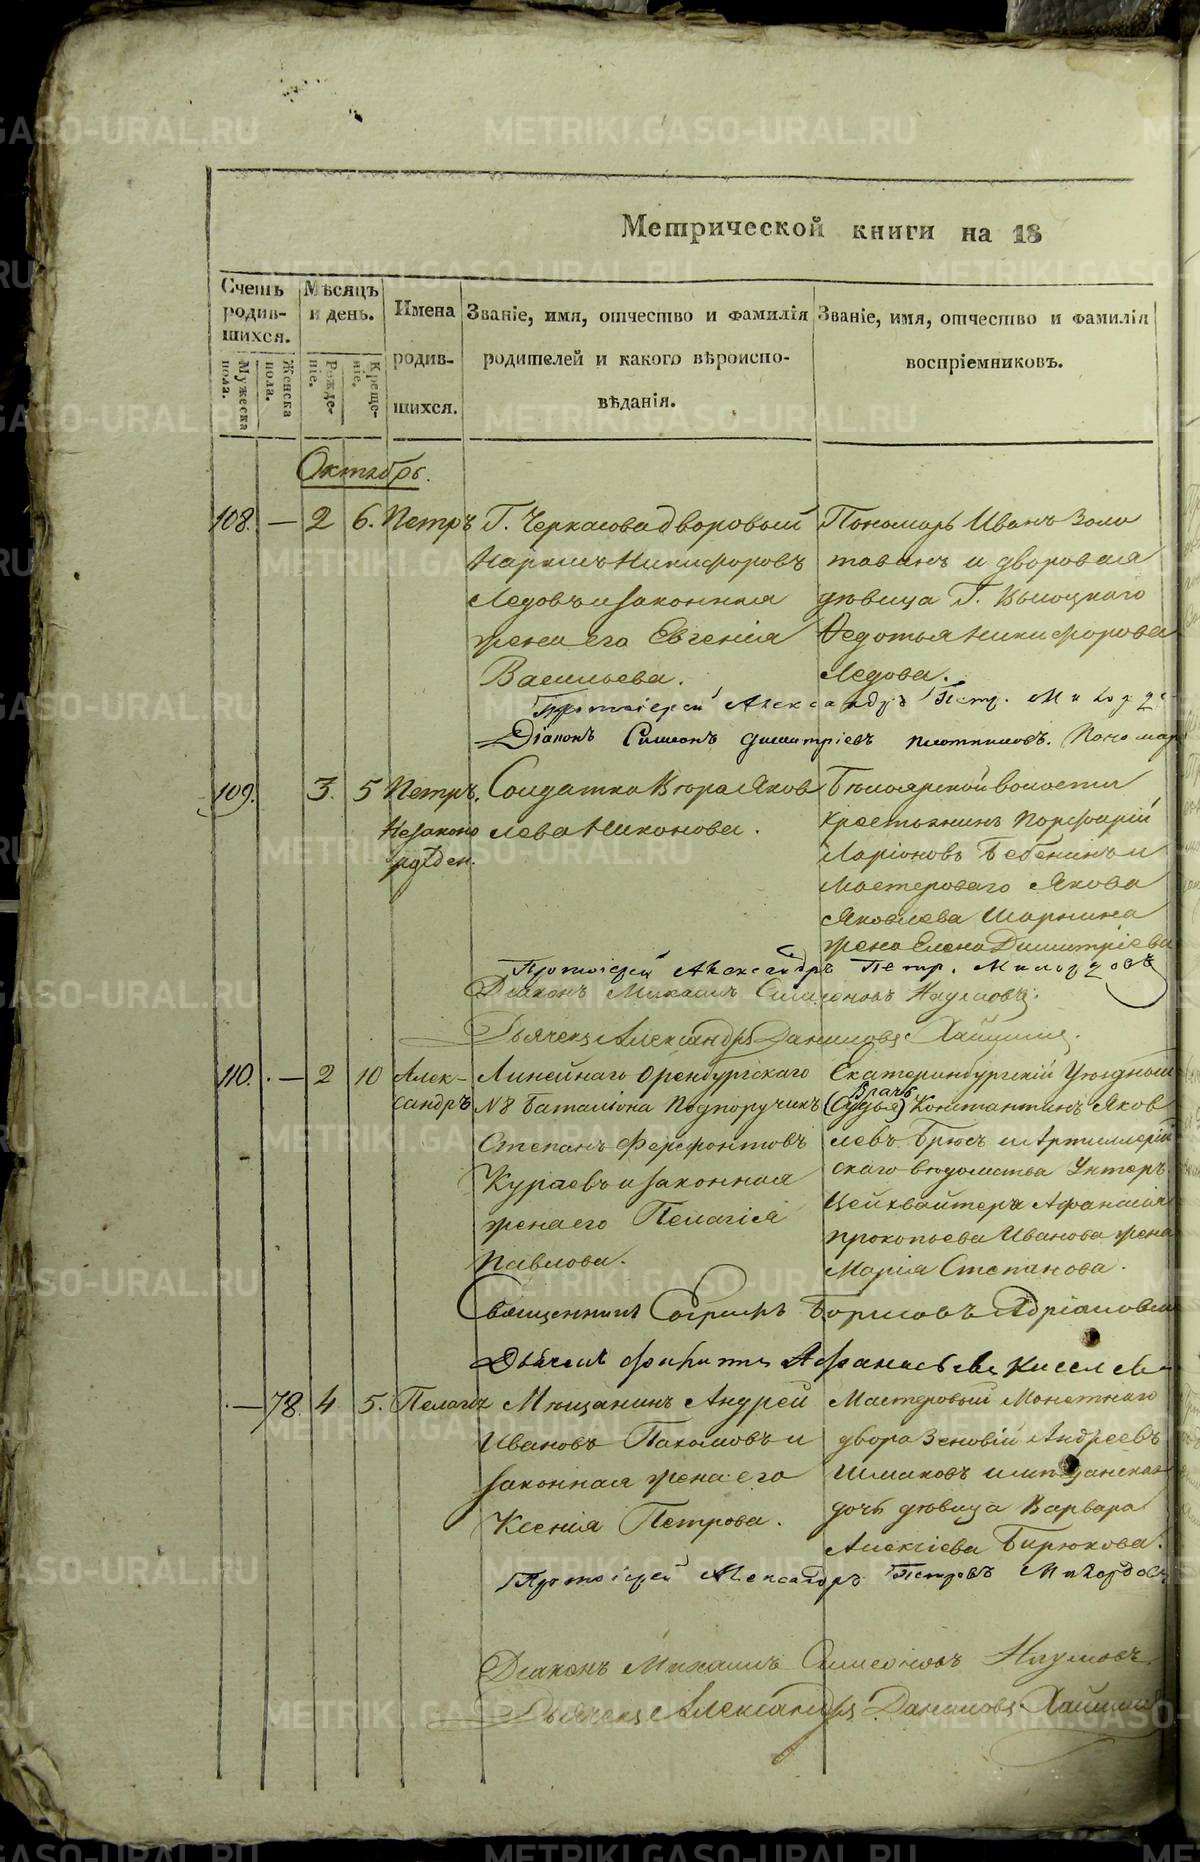 Метрической книги на 18
Счетъ родив-шихся.
Мужеска пола.
Женска пола.
Мѣсяцъ и день.
Рожде-ніе.
Креще-ніе.
Имена родив-шихся.
Званіе, имя, отчество и фамилія
родителей и какого вѣроиспо-
вѣданія.
Званіе, имя, отчество и фамилія
воспріемниковъ.
Октябрь.
108. — 2 6. Петръ
Г. Черкасова дворовый
Никифоровъ
Ледовъ и законная
жена его Евгенія
Васильева.
Пономарь Иванъ Золо
тавинъ и дворовая
дѣвица Г. Высоцкаго
Ѳедотья Никифорова
Ледова.
Протоіерей Александръ Петр.
Діаконъ Симеонъ Димитріевъ Плотниковъ. Пономарь
109. 3. 5 Петръ,
Незаконо
рожден.
Солдатка Вѣра Яков
лева Никонова.
Бѣлоярской волости
крестьянинъ Порфирій
Ларіоновъ Бебенинъ и
мастероваго Якова
Яковлева Шарнина
жена Елена Димитріева
Протоіерей Александръ Петр.
Діаконъ Михаилъ Симеоновъ Наумовъ.
Дьячекъ Александръ Даниловъ
110. — 2 10 Алек-
сандръ
Линейнаго Оренбургскаго
№8 Баталіона Подпоручикъ
Степанъ Ферефонтовъ
Кураевъ и законная
жена его Пелагія
Павлова.
Екатеринбургскій Уѣздный
Врачъ
(Судья) Константинъ Яков
левъ Брюсъ и Артиллерій
скаго вѣдомства Унтеръ
Цейхвайтера Афанасія
Прокопьева Иванова жена
Марія Степанова.
Священникъ Борисовъ Адріановскій
Дьячекъ Афанасьевъ Киселевъ
— 78. 4 5. Пелагія
Мѣщанинъ Андрей
Ивановъ Пахомовъ и
законная жена его
Ксенія Петрова.
Мастеровый Монетнаго
двора Зеновій Андреевъ
Шмаковъ и мѣщанская
дочь дѣвица Варвара
Алексіева Бирюкова.
Протоіерей Александръ Петровъ
Діаконъ Михаилъ Симеоновъ Наумовъ.
Дьячекъ Александръ Даниловъ
METRIKI.GASO-URAL.RU